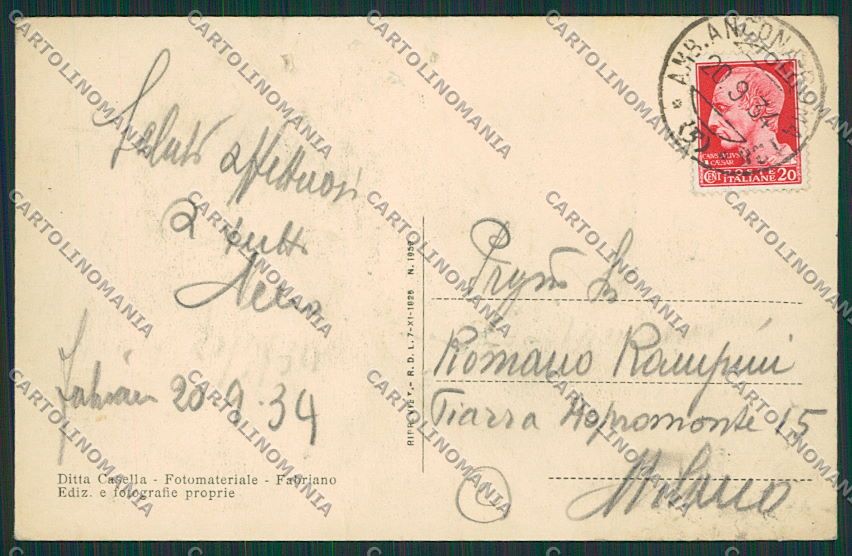 Saluti affettuosi
a tutti
Fabriano 20.9.34
Ditta Casella - Fotomateriale - Fabriano
Ediz. e fotografie proprie
R. D. L. 7-XI-1925 N. 1957
AMB. ANCONA
20.9.34
CAIVS IVLIVS
CAESAR
CENT 20
ITALIANE
Romano Rampini
Piazza Aspromonte 15
Milano
CARTOLINOMANIA